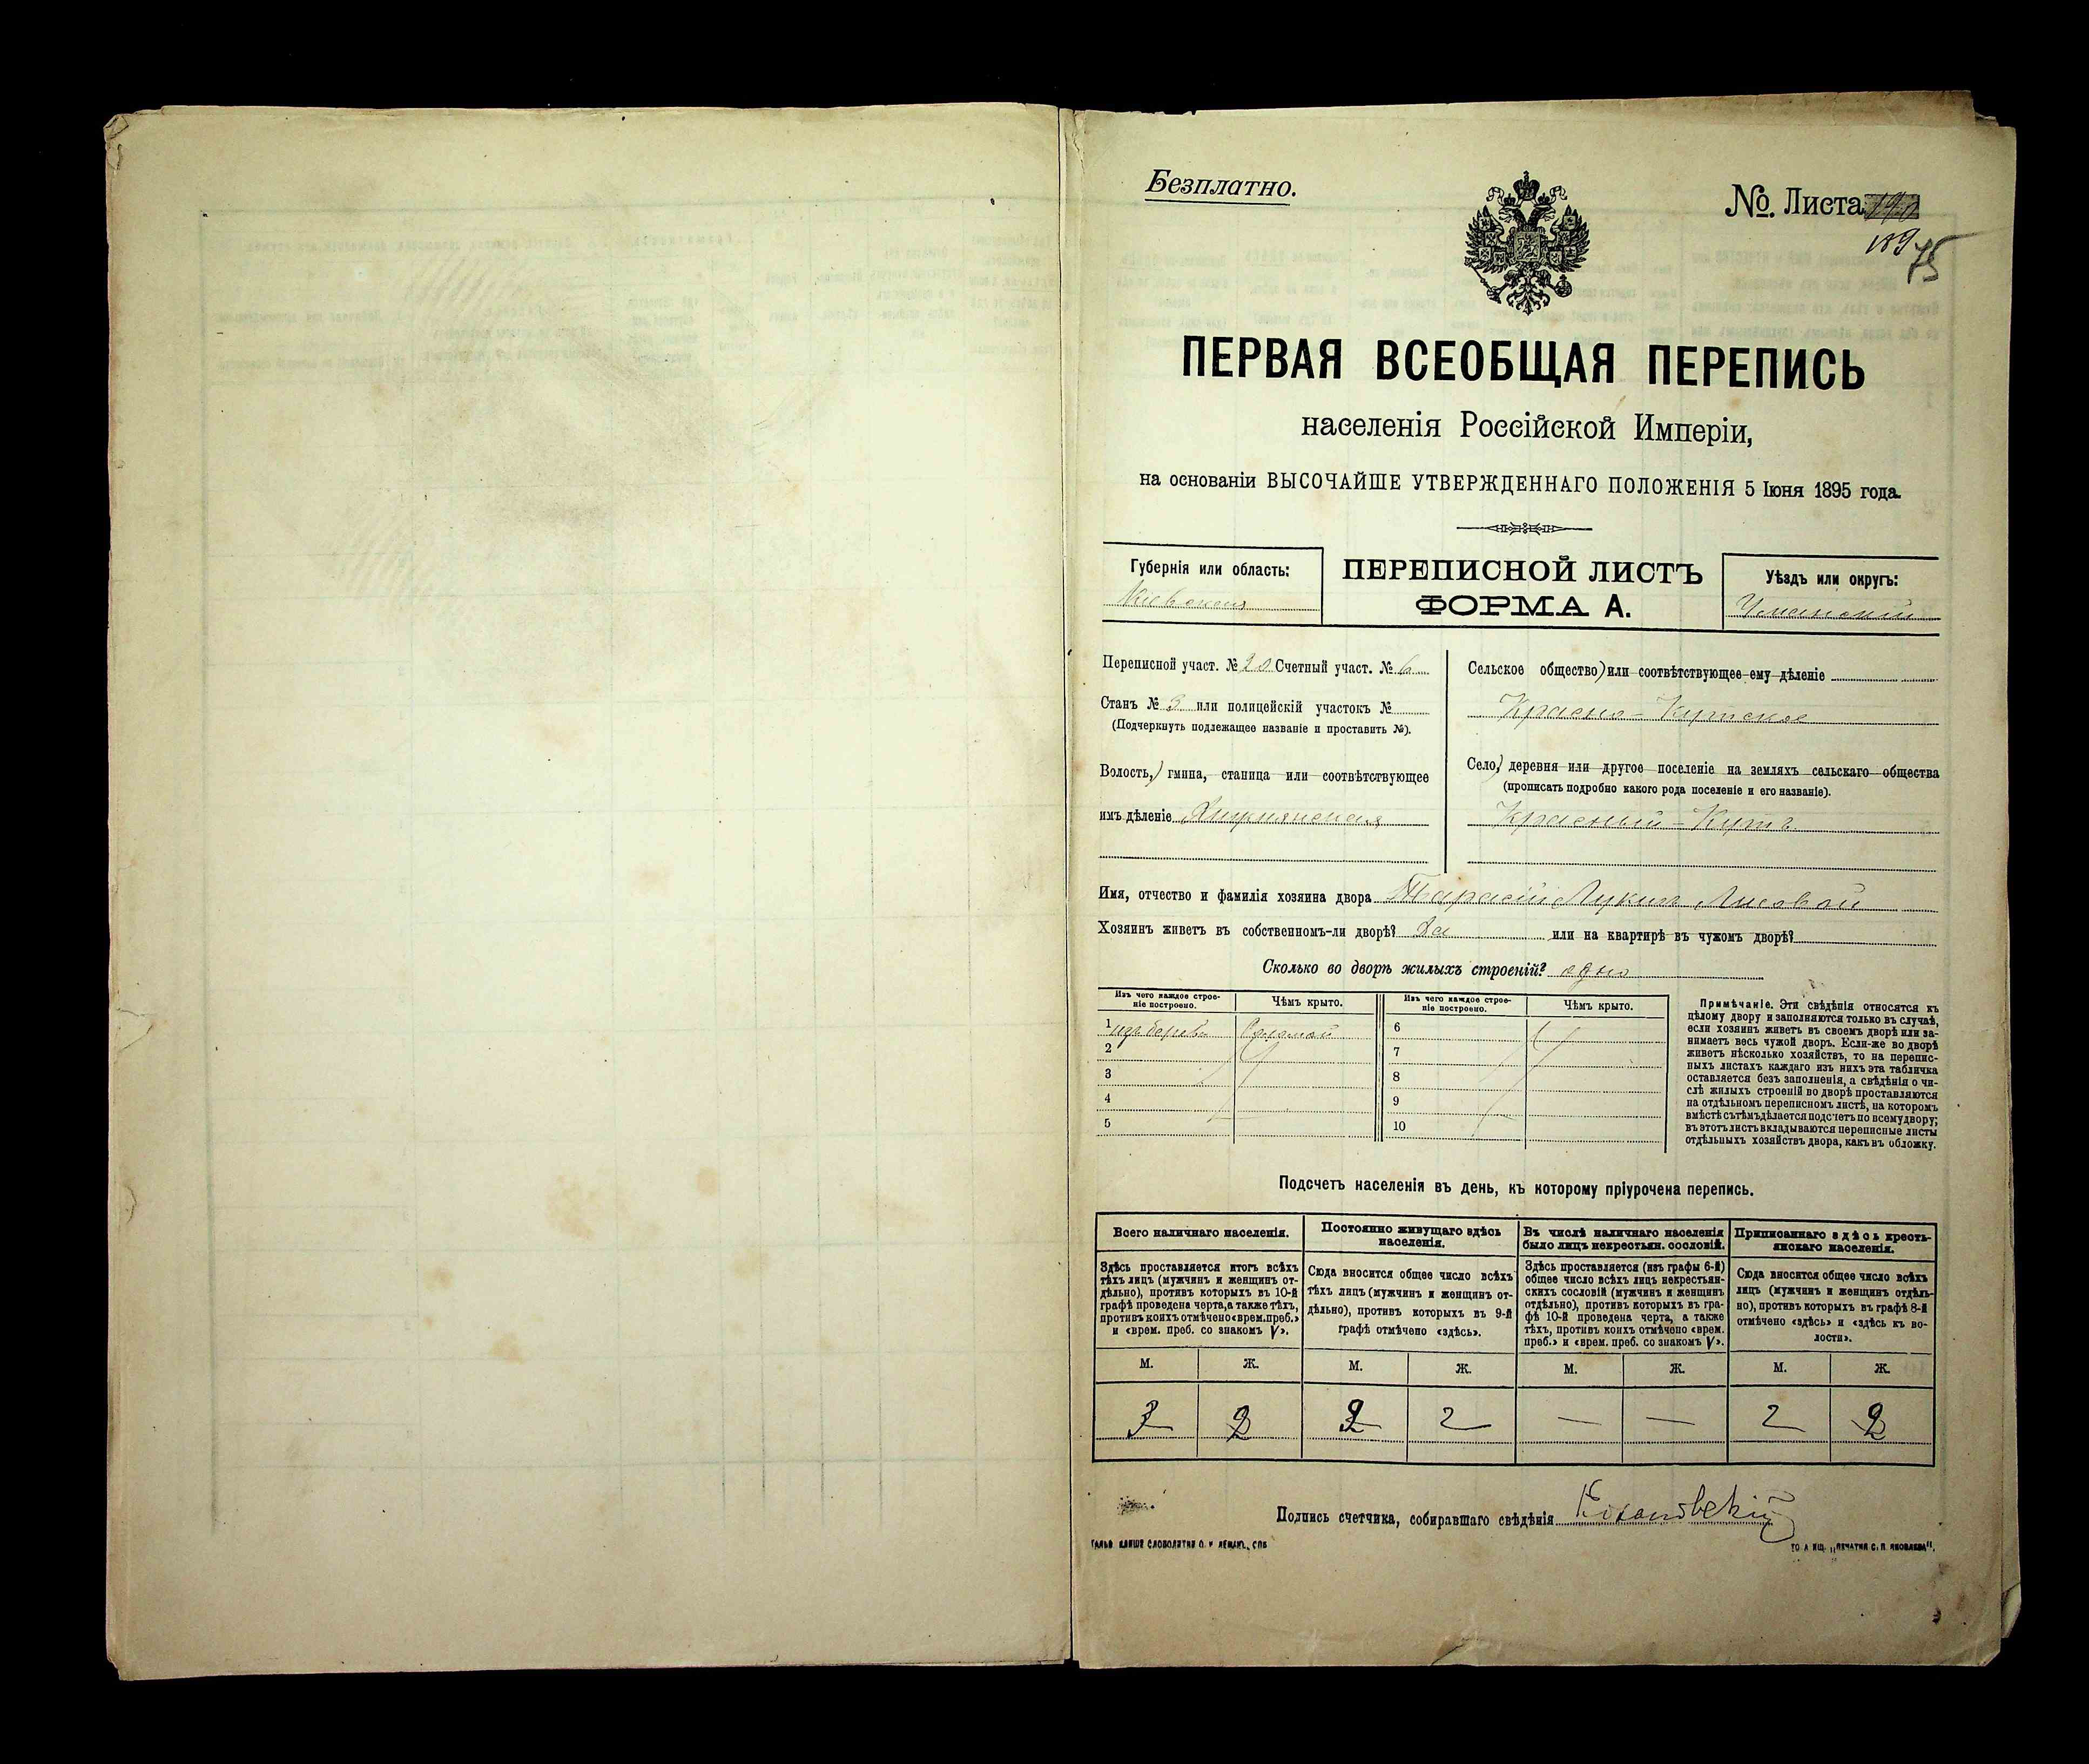 Безплатно.
№. Листа
189 75
ПЕРВАЯ ВСЕОБЩАЯ ПЕРЕПИСЬ
населенія Россійской Имперіи,
на основаніи ВЫСОЧАЙШЕ УТВЕРЖДЕННАГО ПОЛОЖЕНІЯ 5 Іюня 1895 года.
Губернія или область:
Кіевская
ПЕРЕПИСНОЙ ЛИСТЪ
ФОРМА А.
Уѣздъ или округъ:
Уманскій
Переписной участ. № 20 Счетный участ. № 6
Станъ № 3 или полицейскій участокъ №
(Подчеркнуть подлежащее названіе и проставить №).
Волость,) гмина, станица или соотвѣтствующее
имъ дѣленіе
Сельское общество) или соотвѣтствующее ему дѣленіе
Красно-Кутское
Село,) деревня или другое поселеніе на земляхъ сельскаго общества
(прописать подробно какого рода поселеніе и его названіе).
Красный-Кутъ
Имя, отчество и фамилія хозяина двора Тарасій Лукинъ Лисовой
Хозяинъ живетъ въ собственномъ-ли дворѣ? Да или на квартирѣ въ чужомъ дворѣ?
Сколько во дворѣ жилыхъ строеній? одно
Изъ чего каждое строе-
ніе построено.
Чѣмъ крыто.
Изъ чего каждое строе-
ніе построено.
Чѣмъ крыто.
1 изъ дерева Соломой
2
3
4
5
6
7
8
9
10
Примѣчаніе. Эти свѣдѣнія относятся къ
цѣлому двору и заполняются только въ случаѣ,
если хозяинъ живетъ въ своемъ дворѣ или за-
нимаетъ весь чужой дворъ. Если-же во дворѣ
живетъ нѣсколько хозяйствъ, то на перепис-
ныхъ листахъ каждаго изъ нихъ эта табличка
оставляется безъ заполненія, а свѣдѣнія о чи-
слѣ жилыхъ строеній во дворѣ проставляются
на отдѣльномъ переписномъ листѣ, на которомъ
вмѣстѣ съ тѣмъ дѣлается подсчетъ по всему двору;
въ этотъ листъ вкладываются переписные листы
отдѣльныхъ хозяйствъ двора, какъ въ обложку.
Подсчетъ населенія въ день, къ которому пріурочена перепись.
Всего наличнаго населенія.
Здѣсь проставляется итогъ всѣхъ
тѣхъ лицъ (мужчинъ и женщинъ от-
дѣльно), противъ которыхъ въ 10-й
графѣ проведена черта, а также тѣхъ,
противъ коихъ отмѣчено «врем. преб.»
и «врем. преб. со знакомъ V».
Постоянно живущаго здѣсь
населенія.
Сюда вносится общее число всѣхъ
тѣхъ лицъ (мужчинъ и женщинъ от-
дѣльно), противъ которыхъ въ 9-й
графѣ отмѣчено «здѣсь».
Въ числѣ наличнаго населенія
было лицъ некрестьян. сословій.
Здѣсь проставляется (изъ графы 6-й)
общее число всѣхъ лицъ некрестьян-
скихъ сословій (мужчинъ и женщинъ
отдѣльно), противъ которыхъ въ гра-
фѣ 10-й проведена черта, а также
тѣхъ, противъ коихъ отмѣчено «врем.
преб.» и «врем. преб. со знакомъ V».
Приписаннаго здѣсь кресть-
янскаго населенія.
Сюда вносится общее число всѣхъ
лицъ (мужчинъ и женщинъ отдѣль-
но), противъ которыхъ въ графѣ 8-й
отмѣчено «здѣсь» и «здѣсь къ во-
лости».
М. Ж. М. Ж. М. Ж. М. Ж.
3 2 2 2 — — 2 2
Подпись счетчика, собиравшаго свѣдѣнія